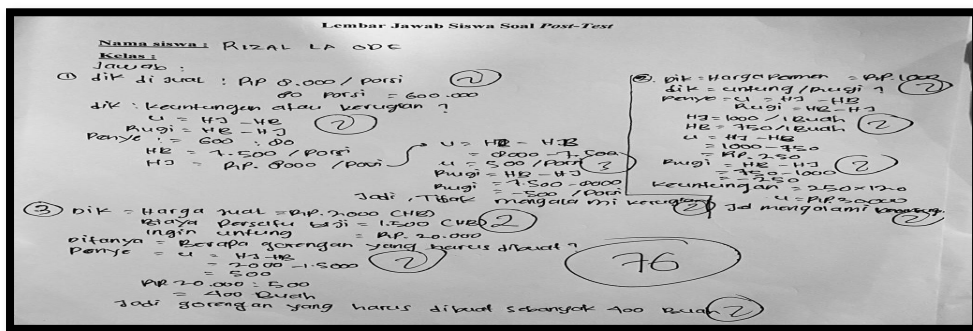 Lembar Jawab Siswa Soal Post-Test
Nama siswa : RIZAL LA ODE
Kelas :
Jawab :
① dik di jual : Rp 8.000 / porsi ②
80 porsi = 600.000
dik : keuntungan atau kerugian ?
u = HJ - HB ②
Rugi = HB - HJ
Penye : = 600 : 80
HB = 7.500 / porsi
HJ = Rp. 8000 / porsi
u = HB - HJB
= 8000 - 7.500
u = 500 / porsi ③
Rugi = HB - HJ
Rugi = 7.500 - 8000
= -500 / porsi
Jadi, Tidak mengalami kerugian ②
②. Dik = Harga Permen = Rp. 1000
dik = untung / Rugi ? ②
Penye = u = HJ - HB
Rugi = HB - HJ
HJ = 1000 / 1 Buah
HB = 750 / 1 Buah ②
u = HJ - HB
= 1000 - 750
= Rp. 250
Rugi = HB - HJ ②
= 750 - 1000
= -250
Keuntungan = 250 x 120
u = Rp 30.000
Jd mengalami
③ Dik = Harga jual = Rp. 2000 (HB)
Biaya Persatu biji = 1.500 (HB) ②
ingin untung = Rp. 20.000
Ditanya = Berapa gorengan yang harus dibuat ?
Penye = u = HJ - HB
= 2000 - 1.5000 ②
= 500
Rp 20.000 : 500
= 400 Buah
76
Jadi gorengan yang harus dibuat sebanyak 400 Buah ②